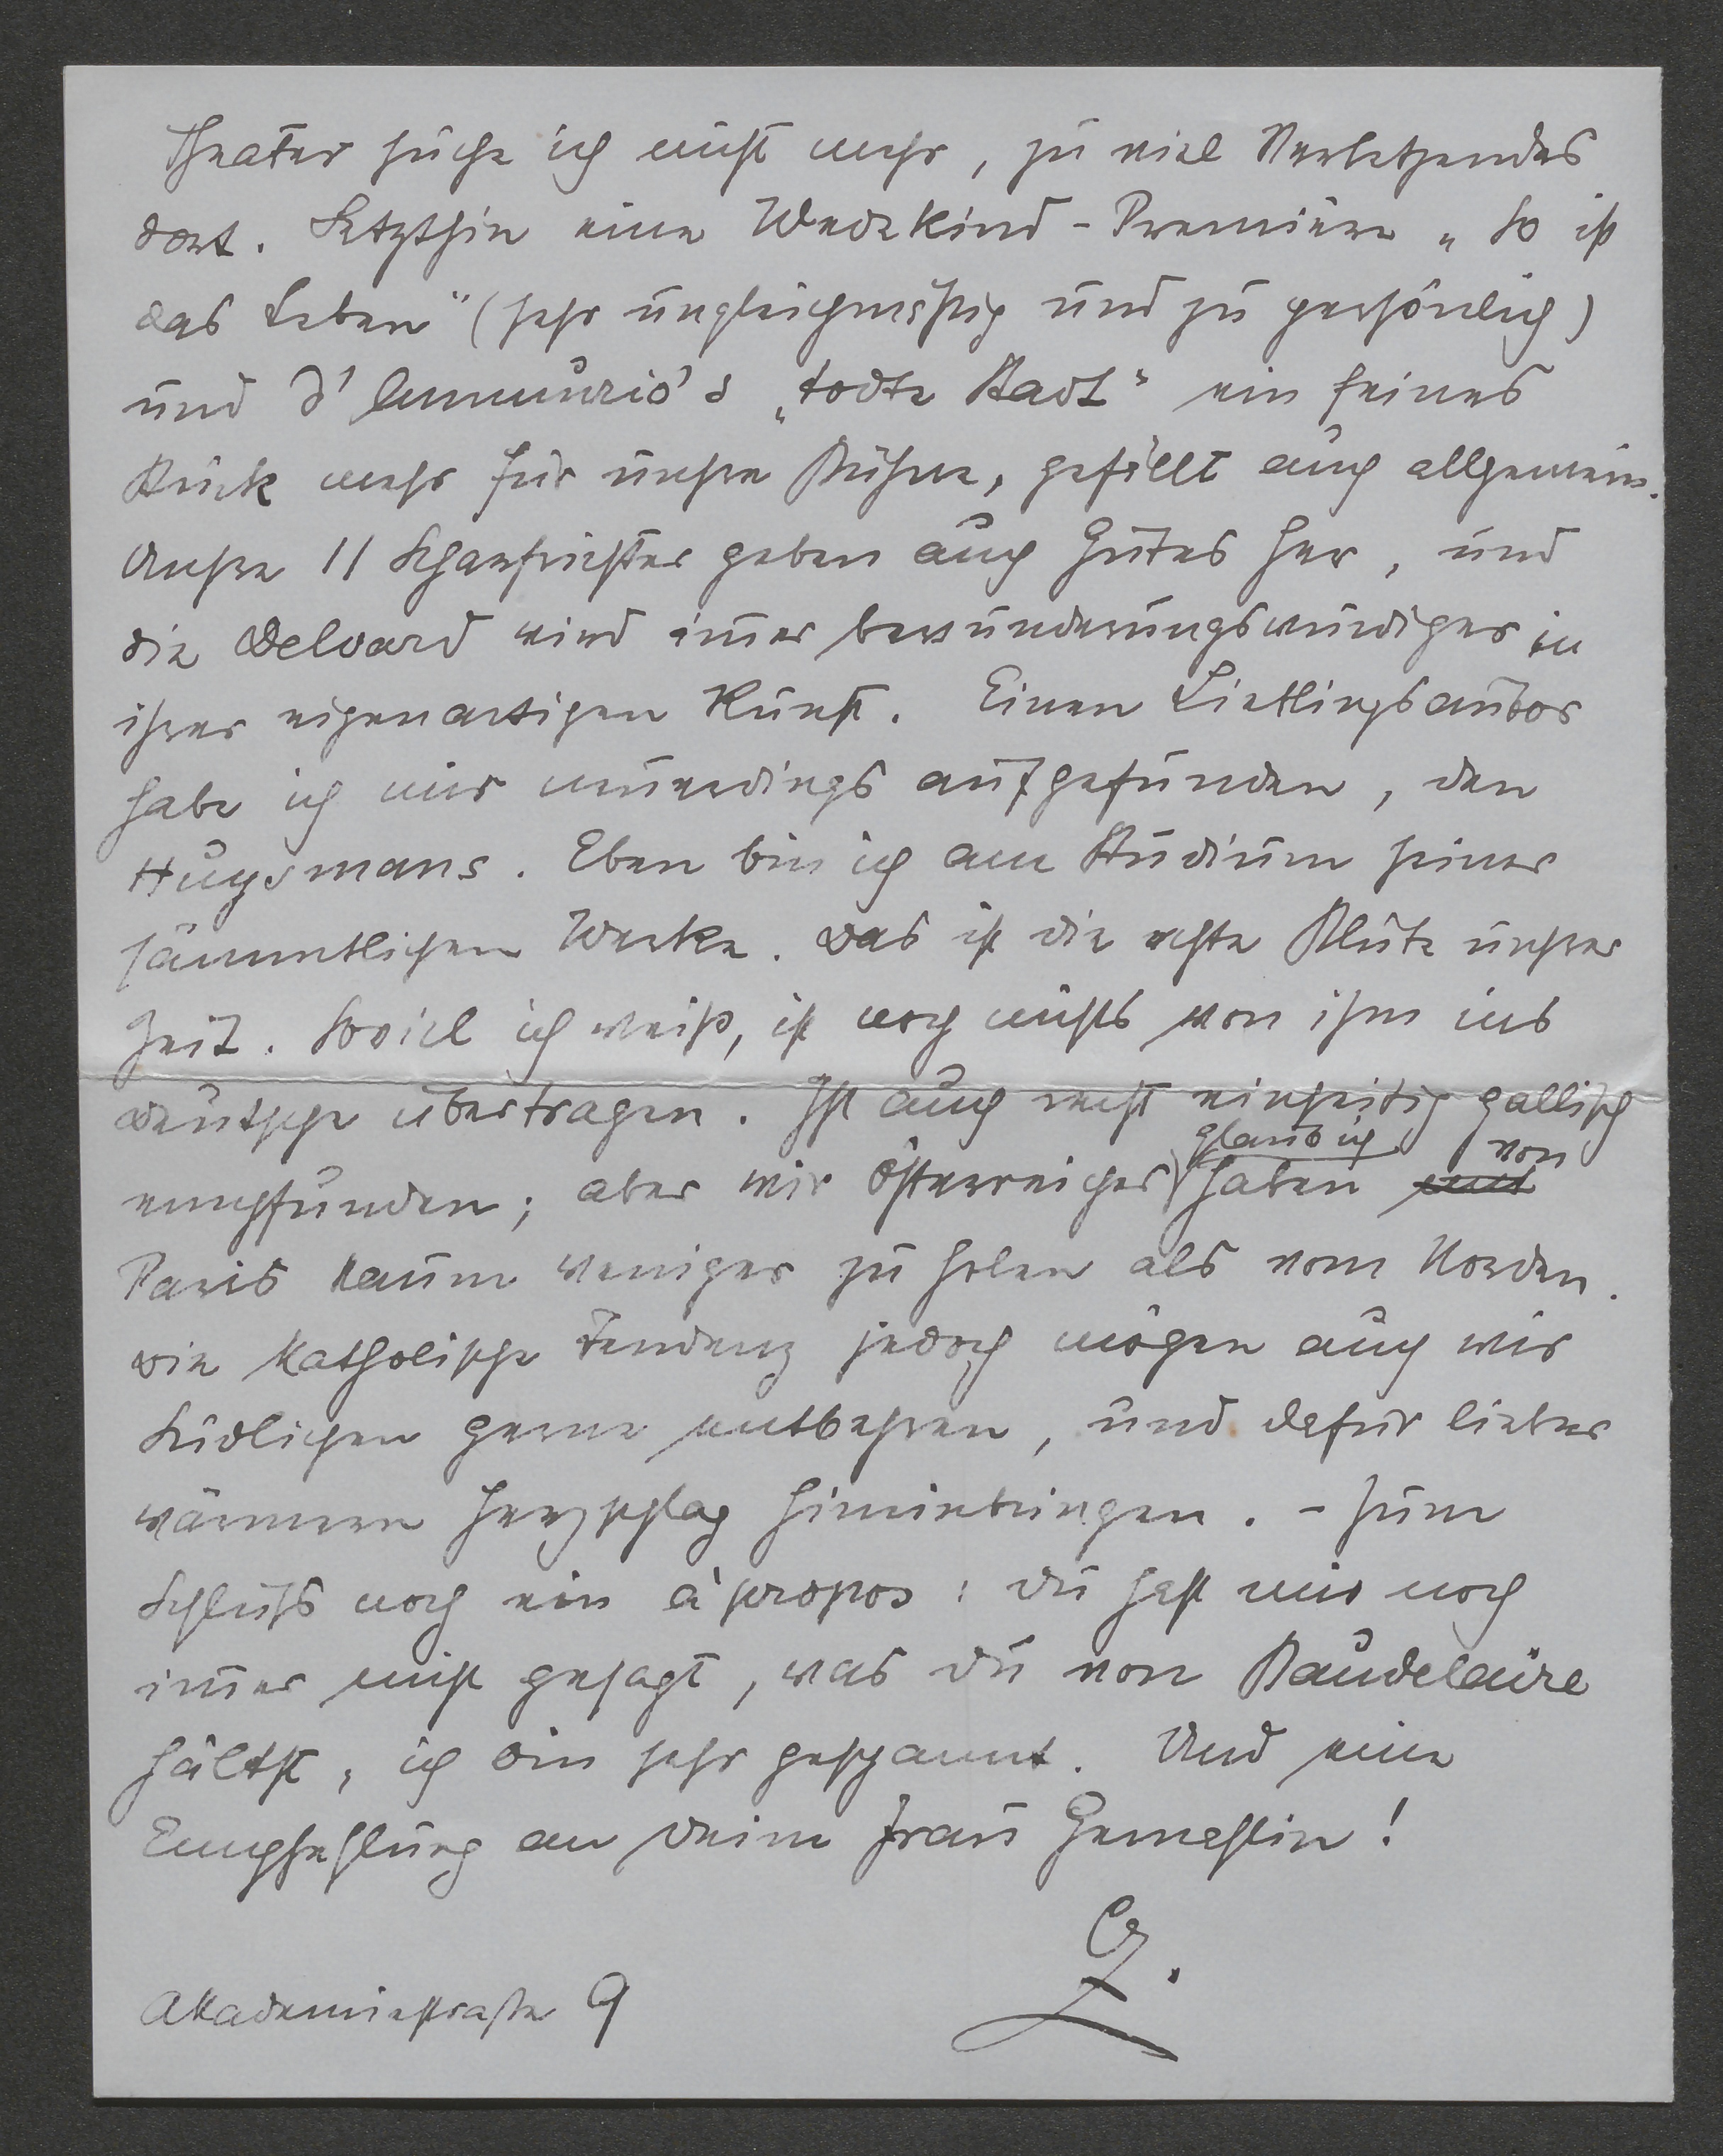 Theater suche ich nicht mehr, zu viel Verletzendes
dort. Letzthin eine Wedekind-Premiere „So ist
das Leben" (sehr ungleichmäßig und zu persönlich)
und d'Annunzio's „todte Stadt" ein feines
Stück mehr für unsre Bühne, gefällt auch allgemein.
Unsre 11 Scharfrichter geben auch Gutes her, und
die Delvard wird im̅er bewunderungswürdiger in
ihrer eigenartigen Kunst. Einen Lieblingsautor
habe ich mir neuerdings aufgefunden, den
Huysmans. Eben bin ich am Studium seiner
sämmtlichen Werke. Das ist die echte Blüte unsrer
Zeit. Soviel ich weiß, ist noch nichts von ihm ins
Deutsche übertragen. Ist auch recht einseitig gallisch
empfunden; aber wir Österreicher glaub ich haben mit von
Paris kaum weniger zu holen als vom Norden.
Die katholische Tendenz jedoch mögen auch wir
Südlichen gerne entbehren, und dafür lieber
wärmern Herzschlag hineinbringen. - Zum
Schluß noch ein à propos: du hast mir noch
im̅er nicht gesagt, was du von Baudelaire
hältst, ich bin sehr gespannt. Und eine
Empfehlung an Deine Frau Gemahlin!
G.
Akademiestraße 9